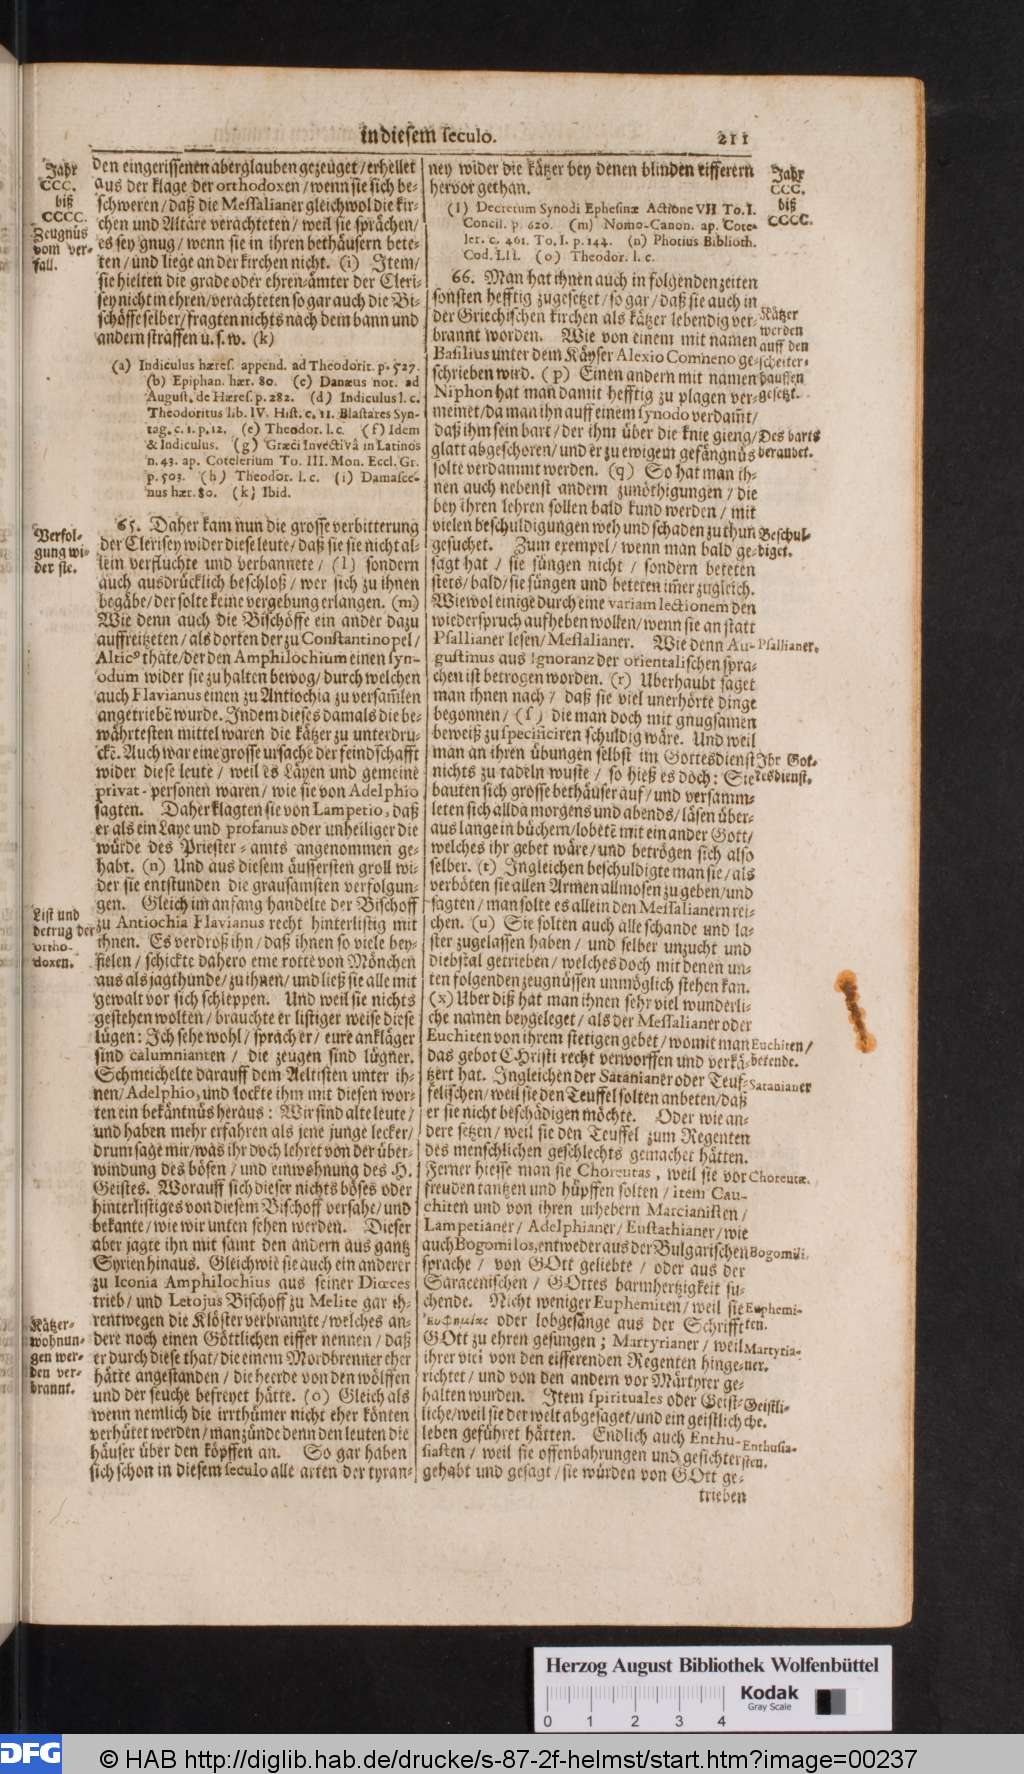 in diesem seculo.
211
Jahr
CCC.
biß
CCCC.
Zeugnüs
vom ver-
fall.
den eingerissenen aberglauben gezeuget / erhellet
aus der klage der orthodoxen / wenn sie sich be-
schweren / daß die Messalianer gleichwol die kir-
chen und Altäre verachteten / weil sie sprächen /
es sey gnug / wenn sie in ihren bethäusern bete-
ten / und liege an der kirchen nicht. (i) Item /
sie hielten die grade oder ehren-ämter der Cleri-
sey nicht in ehren / verachteten so gar auch die Bi-
schöffe selber / fragten nichts nach dem bann und
andern straffen u. s. w. (k)
(a) Indiculus hæres. append. ad Theodorit. p. 527.
(b) Epiphan. hær. 80. (c) Danæus not. ad
August. de Hæres. p. 282. (d) Indiculus l. c.
Theodoritus lib. IV. Hist. c. 11. Blastares Syn-
tag. c. 1. p. 12. (e) Theodor. l. c. (f) Idem
& Indiculus. (g) Græci Invectivâ in Latinos
n. 43. ap. Cotelerium To. III. Mon. Eccl. Gr.
p. 503. (h) Theodor. l. c. (i) Damasce-
nus hær. 80. (k) Ibid.
Verfol-
gung wi-
der sie.
65. Daher kam nun die grosse verbitterung
der Clerisey wider diese leute / daß sie sie nicht al-
lein verfluchte und verbannete / (l) sondern
auch ausdrücklich beschloß / wer sich zu ihnen
begäbe / der solte keine vergebung erlangen. (m)
Wie denn auch die Bischöffe ein ander dazu
auffreitzeten / als dorten der zu Constantinopel /
Altic⁹ thäte / der den Amphilochium einen syn-
odum wider sie zu halten bewog / durch welchen
auch Flavianus einen zu Antiochia zu versam̃len
angetriebẽ wurde. Indem dieses damals die be-
währtesten mittel waren die kätzer zu unterdru-
ckẽ. Auch war eine grosse ursache der feindschafft
wider diese leute / weil es Läyen und gemeine
privat-personen waren / wie sie von Adelphio
sagten. Daher klagten sie von Lampetio, daß
er als ein Laye und profanus oder unheiliger die
würde des Priester-amts angenommen ge-
habt. (n) Und aus diesem äussersten groll wi-
der sie entstunden die grausamsten verfolgun-
gen. Gleich im anfang handelte der Bischoff
List und
betrug der
ortho-
doxen.
zu Antiochia Flavianus recht hinterlistig mit
ihnen. Es verdroß ihn / daß ihnen so viele bey-
fielen / schickte dahero eine rotte von Mönchen
aus als jagthunde / zu ihnen / und ließ sie alle mit
gewalt vor sich schleppen. Und weil sie nichts
gestehen wolten / brauchte er listiger weise diese
lügen: Ich sehe wohl / sprach er / eure ankläger
sind calumnianten / die zeugen sind lügner.
Schmeichelte darauff dem Aeltisten unter ih-
nen / Adelphio, und lockte ihm mit diesen wor-
ten ein bekäntnüs heraus: Wir sind alte leute /
und haben mehr erfahren als jene junge lecker /
drum sage mir / was ihr doch lehret von der über-
windung des bösen / und einwohnung des H.
Geistes. Worauff sich dieser nichts böses oder
hinterlistiges von diesem Bischoff versahe / und
bekante / wie wir unten sehen werden. Dieser
aber jagte ihn mit samt den andern aus gantz
Syrien hinaus. Gleichwie sie auch ein anderer
zu Iconia Amphilochius aus seiner Diœces
trieb / und Letojus Bischoff zu Melite gar ih-
Kätzer-
wohnun-
gen wer-
den ver-
brannt.
rentwegen die Klöster verbrannte / welches an-
dere noch einen Göttlichen eiffer nennen / daß
er durch diese that / die einem Mordbrenner eher
hätte angestanden / die heerde von den wölffen
und der seuche befreyet hätte. (o) Gleich als
wenn nemlich die irrthümer nicht eher könten
verhütet werden / man zünde denn den leuten die
häuser über den köpffen an. So gar haben
sich schon in diesem seculo alle arten der tyran-
ney wider die kätzer bey denen blinden eifferern
hervor gethan.
Jahr
CCC.
biß
CCCC.
(l) Decretum Synodi Ephesinæ Actione VII To. I.
Concil. p. 620. (m) Nomo-Canon. ap. Cote-
ler. c. 461. To. I. p. 144. (n) Photius Biblioth.
Cod. LII. (o) Theodor. l. c.
66. Man hat ihnen auch in folgenden zeiten
sonsten hefftig zugesetzet / so gar / daß sie auch in
der Griechischen kirchen als kätzer lebendig ver-
brannt worden. Wie von einem mit namen
Basilius unter dem Käyser Alexio Comneno ge-
schrieben wird. (p) Einen andern mit namen
Niphon hat man damit hefftig zu plagen ver-
meinet / da man ihn auff einem synodo verdam̃t /
daß ihm sein bart / der ihm über die knie gieng /
glatt abgeschoren / und er zu ewigem gefängnüs
solte verdammt werden. (q) So hat man ih-
nen auch nebenst andern zunöthigungen / die
bey ihren lehren sollen bald kund werden / mit
vielen beschuldigungen weh und schaden zu thun
gesuchet. Zum exempel / wenn man bald ge-
sagt hat / sie süngen nicht / sondern beteten
stets / bald / sie süngen und beteten im̃er zugleich.
Wiewol einige durch eine variam lectionem den
wiederspruch aufheben wollen / wenn sie an statt
Psallianer lesen / Messalianer. Wie denn Au-
gustinus aus Ignoranz der orientalischen spra-
chen ist betrogen worden. (r) Uberhaupt saget
man ihnen nach / daß sie viel unerhörte dinge
begonnen / (s) die man doch mit gnugsamen
beweiß zu specificiren schuldig wäre. Und weil
man an ihren übungen selbst im Gottesdienst
nichts zu tadeln wuste / so hieß es doch: Sie
bauten sich grosse bethäuser auf / und versamm-
leten sich allda morgens und abends / läsen über-
aus lange in büchern / lobetẽ mit ein ander Gott /
welches ihr gebet wäre / und betrögen sich also
selber. (t) Ingleichen beschuldigte man sie / als
verböten sie allen Armen allmosen zu geben / und
sagten / man solte es allein den Messalianern rei-
chen. (u) Sie solten auch alle schande und la-
ster zugelassen haben / und selber unzucht und
diebstal getrieben / welches doch mit denen un-
ten folgenden zeugnüssen unmöglich stehen kan.
(x) Uber diß hat man ihnen sehr viel wunderli-
che namen beygeleget / als der Messalianer oder
Euchiten von ihrem stetigen gebet / womit man
das gebot Christi recht verworffen und verkä-
tzert hat. Ingleichen der Satanianer oder Teuf-
felischen / weil sie den Teuffel solten anbeten / daß
er sie nicht beschädigen möchte. Oder wie an-
dere setzen / weil sie den Teuffel zum Regenten
des menschlichen geschlechts gemachet hätten.
Ferner hiesse man sie Choreutas, weil sie vor
freuden tantzen und hüpffen solten / item Cau-
chiten und von ihren urhebern Marcianisten /
Lampetianer / Adelphianer / Eustathianer / wie
auch Bogomilos, entweder aus der Bulgarischen
sprache / von GOtt geliebte / oder aus der
Saracenischen / GOttes barmhertzigkeit su-
chende. Nicht weniger Euphemiten / weil sie
ἐυφημίας oder lobgesänge aus der Schrifft
GOtt zu ehren gesungen; Martyrianer / weil
ihrer viel von den eifferenden Regenten hinge-
richtet / und von den andern vor Märtyrer ge-
halten wurden. Item spirituales oder Geist-
liche / weil sie der welt abgesaget / und ein geistlich
leben geführet hätten. Endlich auch Enthu-
siasten / weil sie offenbahrungen und gesichter
gehabt und gesagt / sie würden von GOtt ge-
trieben
Kätzer
werden
auff den
scheiter-
hauffen
gesetzt.
Des barts
beraubet.
Beschul-
diget.
Psallianer.
Ihr Got-
tesdienst.
Euchiten /
betende.
Satanianer
Choreutæ.
Bogomili.
Euphemi-
ten.
Martyria-
ner.
Geistli-
che.
Enthusia-
sten.
Herzog August Bibliothek Wolfenbüttel
0 1 2 3 4
Kodak
Gray Scale
DFG
© HAB http://diglib.hab.de/drucke/s-87-2f-helmst/start.htm?image=00237